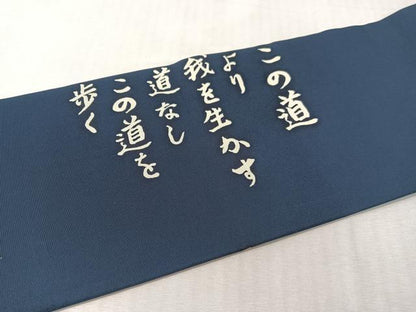 この道
より
我を生かす
道なし
この道を
歩く